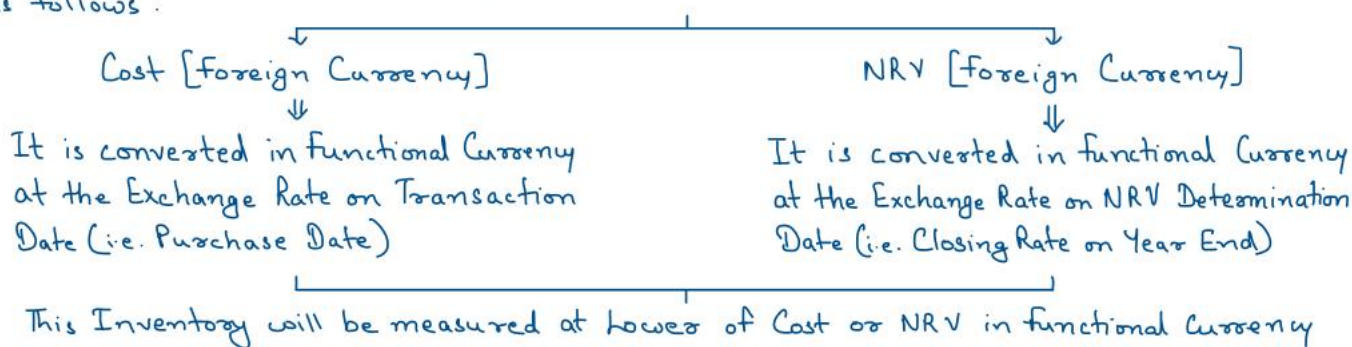 as follows:
Cost [Foreign Currency]
NRV [Foreign Currency]
It is converted in functional Currency
at the Exchange Rate on Transaction
Date (i.e. Purchase Date)
It is converted in functional Currency
at the Exchange Rate on NRV Determination
Date (i.e. Closing Rate on Year End)
This Inventory will be measured at Lower of Cost or NRV in functional Currency